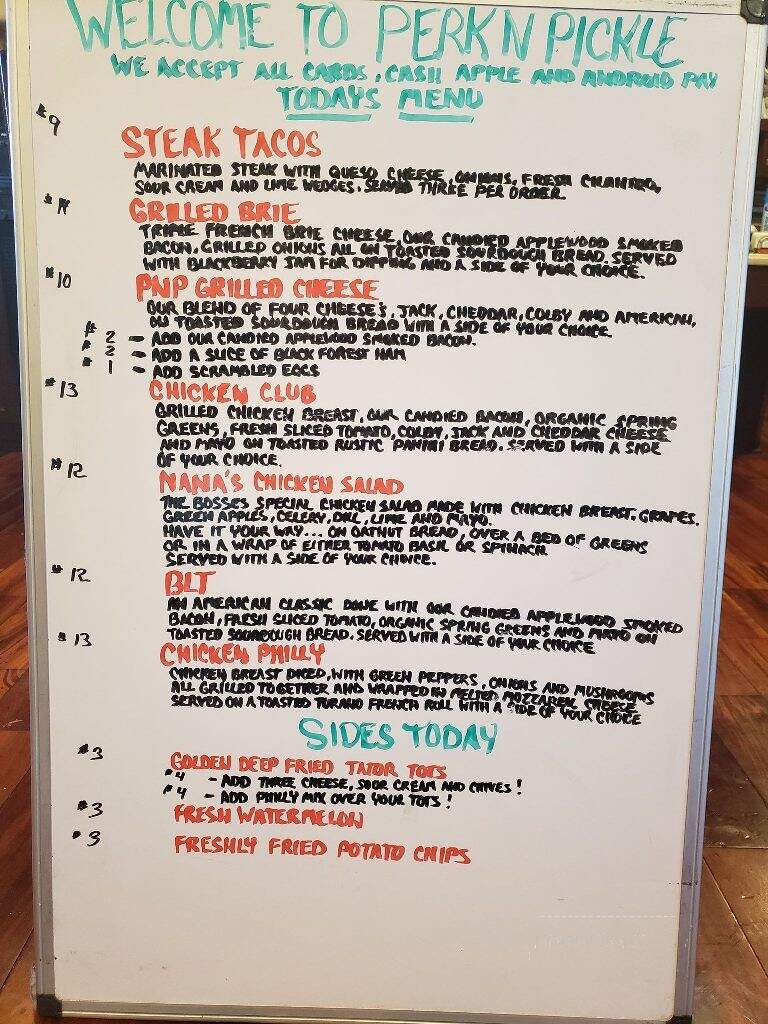 WELCOME TO PERK N PICKLE
WE ACCEPT ALL CARDS, CASH APPLE AND ANDROID PAY
TODAYS MENU
$9 STEAK TACOS
MARINATED STEAK WITH QUESO CHEESE, ONIONS, FRESH CILANTRO,
SOUR CREAM AND LIME WEDGES. SERVED THREE PER ORDER.
GRILLED BRIE
TRIPLE FRENCH BRIE CHEESE, OUR CANDIED APPLEWOOD SMOKED
BACON, GRILLED ONIONS ALL ON TOASTED SOURDOUGH BREAD. SERVED
WITH BLACKBERRY JAM FOR DIPPING AND A SIDE OF YOUR CHOICE.
$10 PNP GRILLED CHEESE
OUR BLEND OF FOUR CHEESE'S, JACK, CHEDDAR, COLBY AND AMERICAN,
ON TOASTED SOURDOUGH BREAD WITH A SIDE OF YOUR CHOICE.
$2 - ADD OUR CANDIED APPLEWOOD SMOKED BACON.
$2 - ADD A SLICE OF BLACK FOREST HAM
$1 - ADD SCRAMBLED EGGS
$13 CHICKEN CLUB
GRILLED CHICKEN BREAST, OUR CANDIED BACON, ORGANIC SPRING
GREENS, FRESH SLICED TOMATO, COLBY, JACK AND CHEDDAR CHEESE
AND MAYO ON TOASTED RUSTIC PANINI BREAD. SERVED WITH A SIDE
OF YOUR CHOICE.
$12 NANA'S CHICKEN SALAD
THE BOSSES SPECIAL CHICKEN SALAD MADE WITH CHICKEN BREAST, GRAPES,
GREEN APPLES, CELERY, DILL, LIME AND MAYO.
HAVE IT YOUR WAY... ON OATNUT BREAD, OVER A BED OF GREENS
OR IN A WRAP OF EITHER TOMATO BASIL OR SPINACH
SERVED WITH A SIDE OF YOUR CHOICE.
$12 BLT
AN AMERICAN CLASSIC DONE WITH OUR CANDIED APPLEWOOD SMOKED
BACON, FRESH SLICED TOMATO, ORGANIC SPRING GREENS AND MAYO ON
TOASTED SOURDOUGH BREAD. SERVED WITH A SIDE OF YOUR CHOICE
$13 CHICKEN PHILLY
CHICKEN BREAST DICED, WITH GREEN PEPPERS, ONIONS AND MUSHROOMS
ALL GRILLED TOGETHER AND WRAPPED IN MELTED MOZZAREL CHEESE
SERVED ON A TOASTED TURANO FRENCH ROLL WITH A SIDE OF YOUR CHOICE
SIDES TODAY
$3 GOLDEN DEEP FRIED TATOR TOTS
$4 - ADD THREE CHEESE, SOUR CREAM AND CHIVES!
$4 - ADD PHILLY MIX OVER YOUR TOTS!
$3 FRESH WATERMELON
$3 FRESHLY FRIED POTATO CHIPS